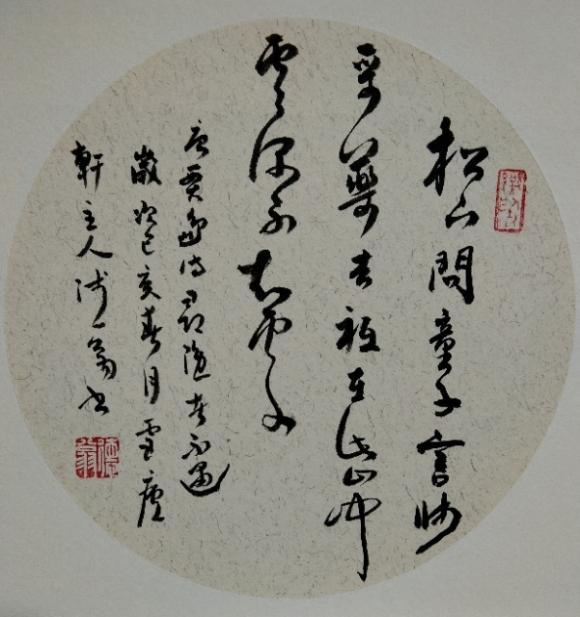 松下問童子言師
采藥去祇在此山中
雲深不知處
唐賈島诗尋隱者不遇
歲次己亥春月雪廬
軒主人翁书